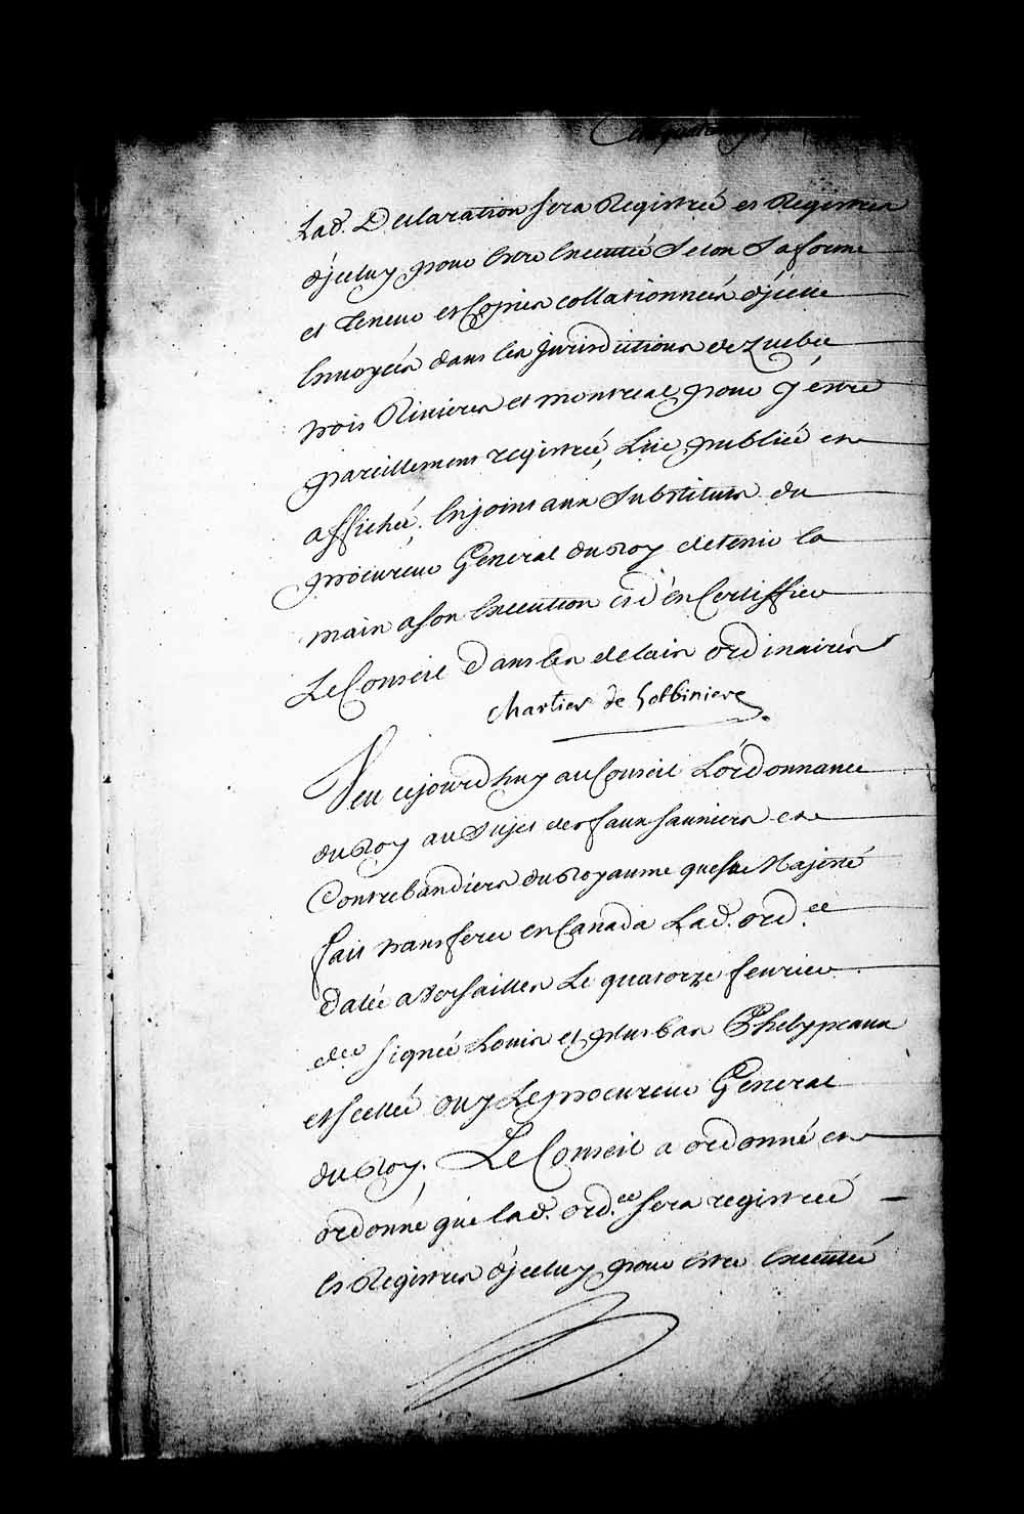 Lad. Declaration sera Registrée es Registres
d'jceluy pour Estre Executée Selon Sa forme
et Teneur et Copies collationnées d'jcelle
Envoyées dans les Jurisdictions de Quebec
trois Rivieres et montreal pour y éstre
pareillement registrée, Lüe, publiée et
affichée, Enjoint aux Substituts du
procureur General du Roy de tenir la
main a son Execution et d'en Certiffier
Le Conseil dans les delais ordinaires
Chartier de Lotbiniere
Veu cejourd'huy au Conseil L'ordonnance
du Roy au Sujet des faux sauniers et
Contrebandiers du Royaume que Sa Majesté
fait transferer en Canada Lad. ord.ce
datée a Versailles Le quatorze fevrier
der signée Louis et plus bas Phelypeaux
et scellée ouy Le procureur General
du Roy, Le Conseil a ordonné et
ordonne que lad. ord.ce sera registrée
es Registres d'jceluy pour estre Executée